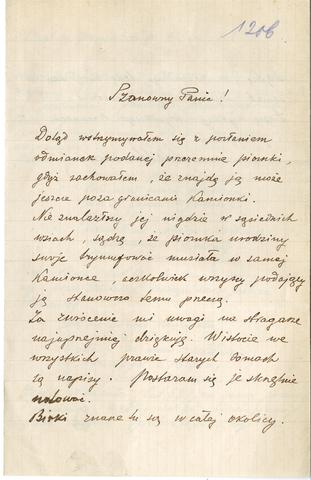 120b
Szanowny Panie!
Dotąd wstrzymywałem się z posłaniem
odmianek podanej przezemnie piosnki,
gdyż zachowałem, że znajdę ją może
jeszcze poza granicami Kamionki.
Nie znalazłszy jej nigdzie w sąsiednich
wsiach, sądzę, że piosnka urodziny
swoje tryumfować musiała w samej
Kamionce, aczkolwiek wszyscy podający
ją stanowczo temu przeczą.
Za zwrócenie mi uwagi na stragarze
najuprzejmiej dziękuję. W istocie we
wszystkich prawie starych domach
są napisy. Postaram się je skrzętnie
notować.
Birki znane tu są w całej okolicy.